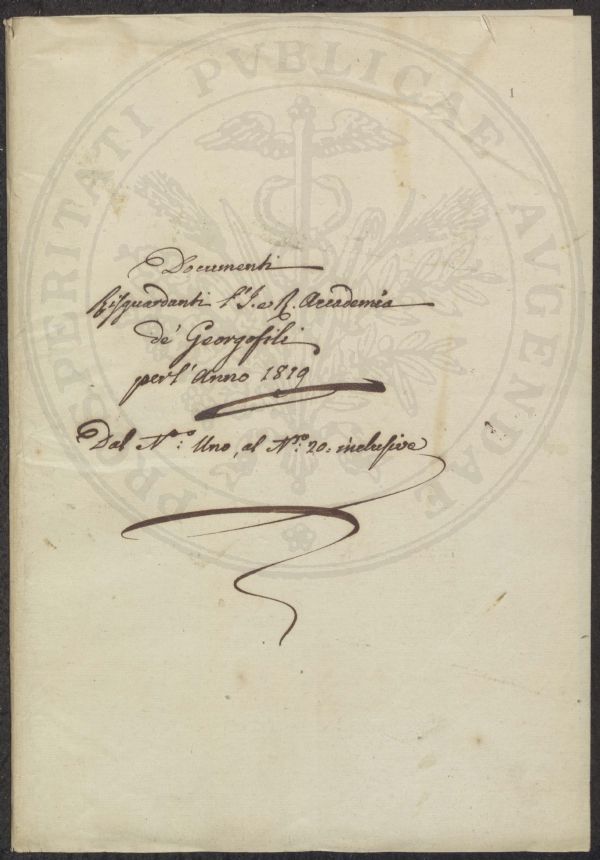 1
PROSPERITATI PVBLICAE AVGENDAE
Documenti
Risguardanti l'I. e R. Accademia
de' Georgofili
per l'Anno 1819
Dal N.ro Uno, al N.ro 20. inclusive